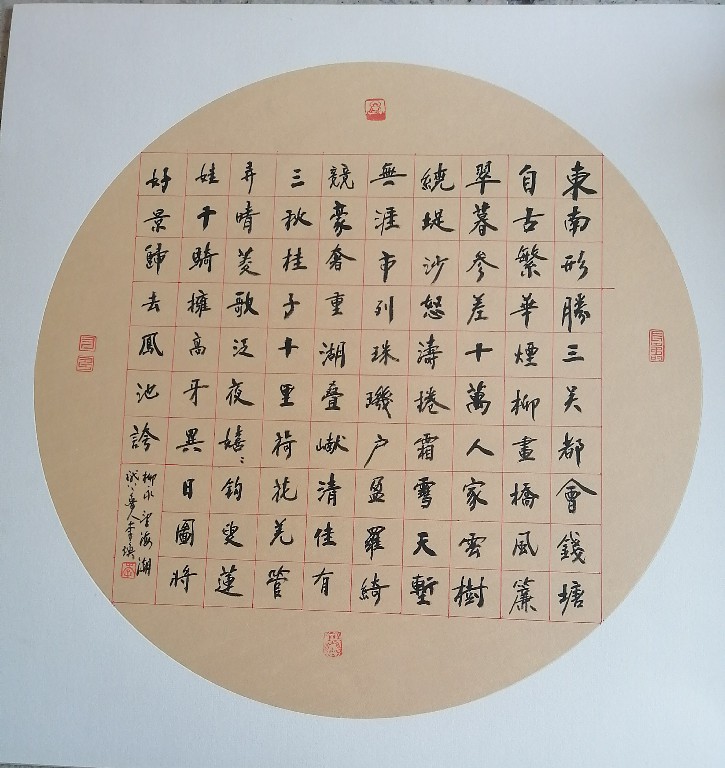 東南形勝三吴都會錢塘
自古繁華煙柳畫橋風簾
翠暮參差十萬人家雲樹
繞堤沙怒濤捲霜雪天塹
無涯市列珠璣户盈羅綺
競豪奢重湖疊巘清佳有
三秋桂子十里荷花羌管
弄晴菱歌泛夜嬉〻釣叟蓮
娃千騎擁高牙異日圖將
好景歸去鳳池誇
柳永望海潮
人李